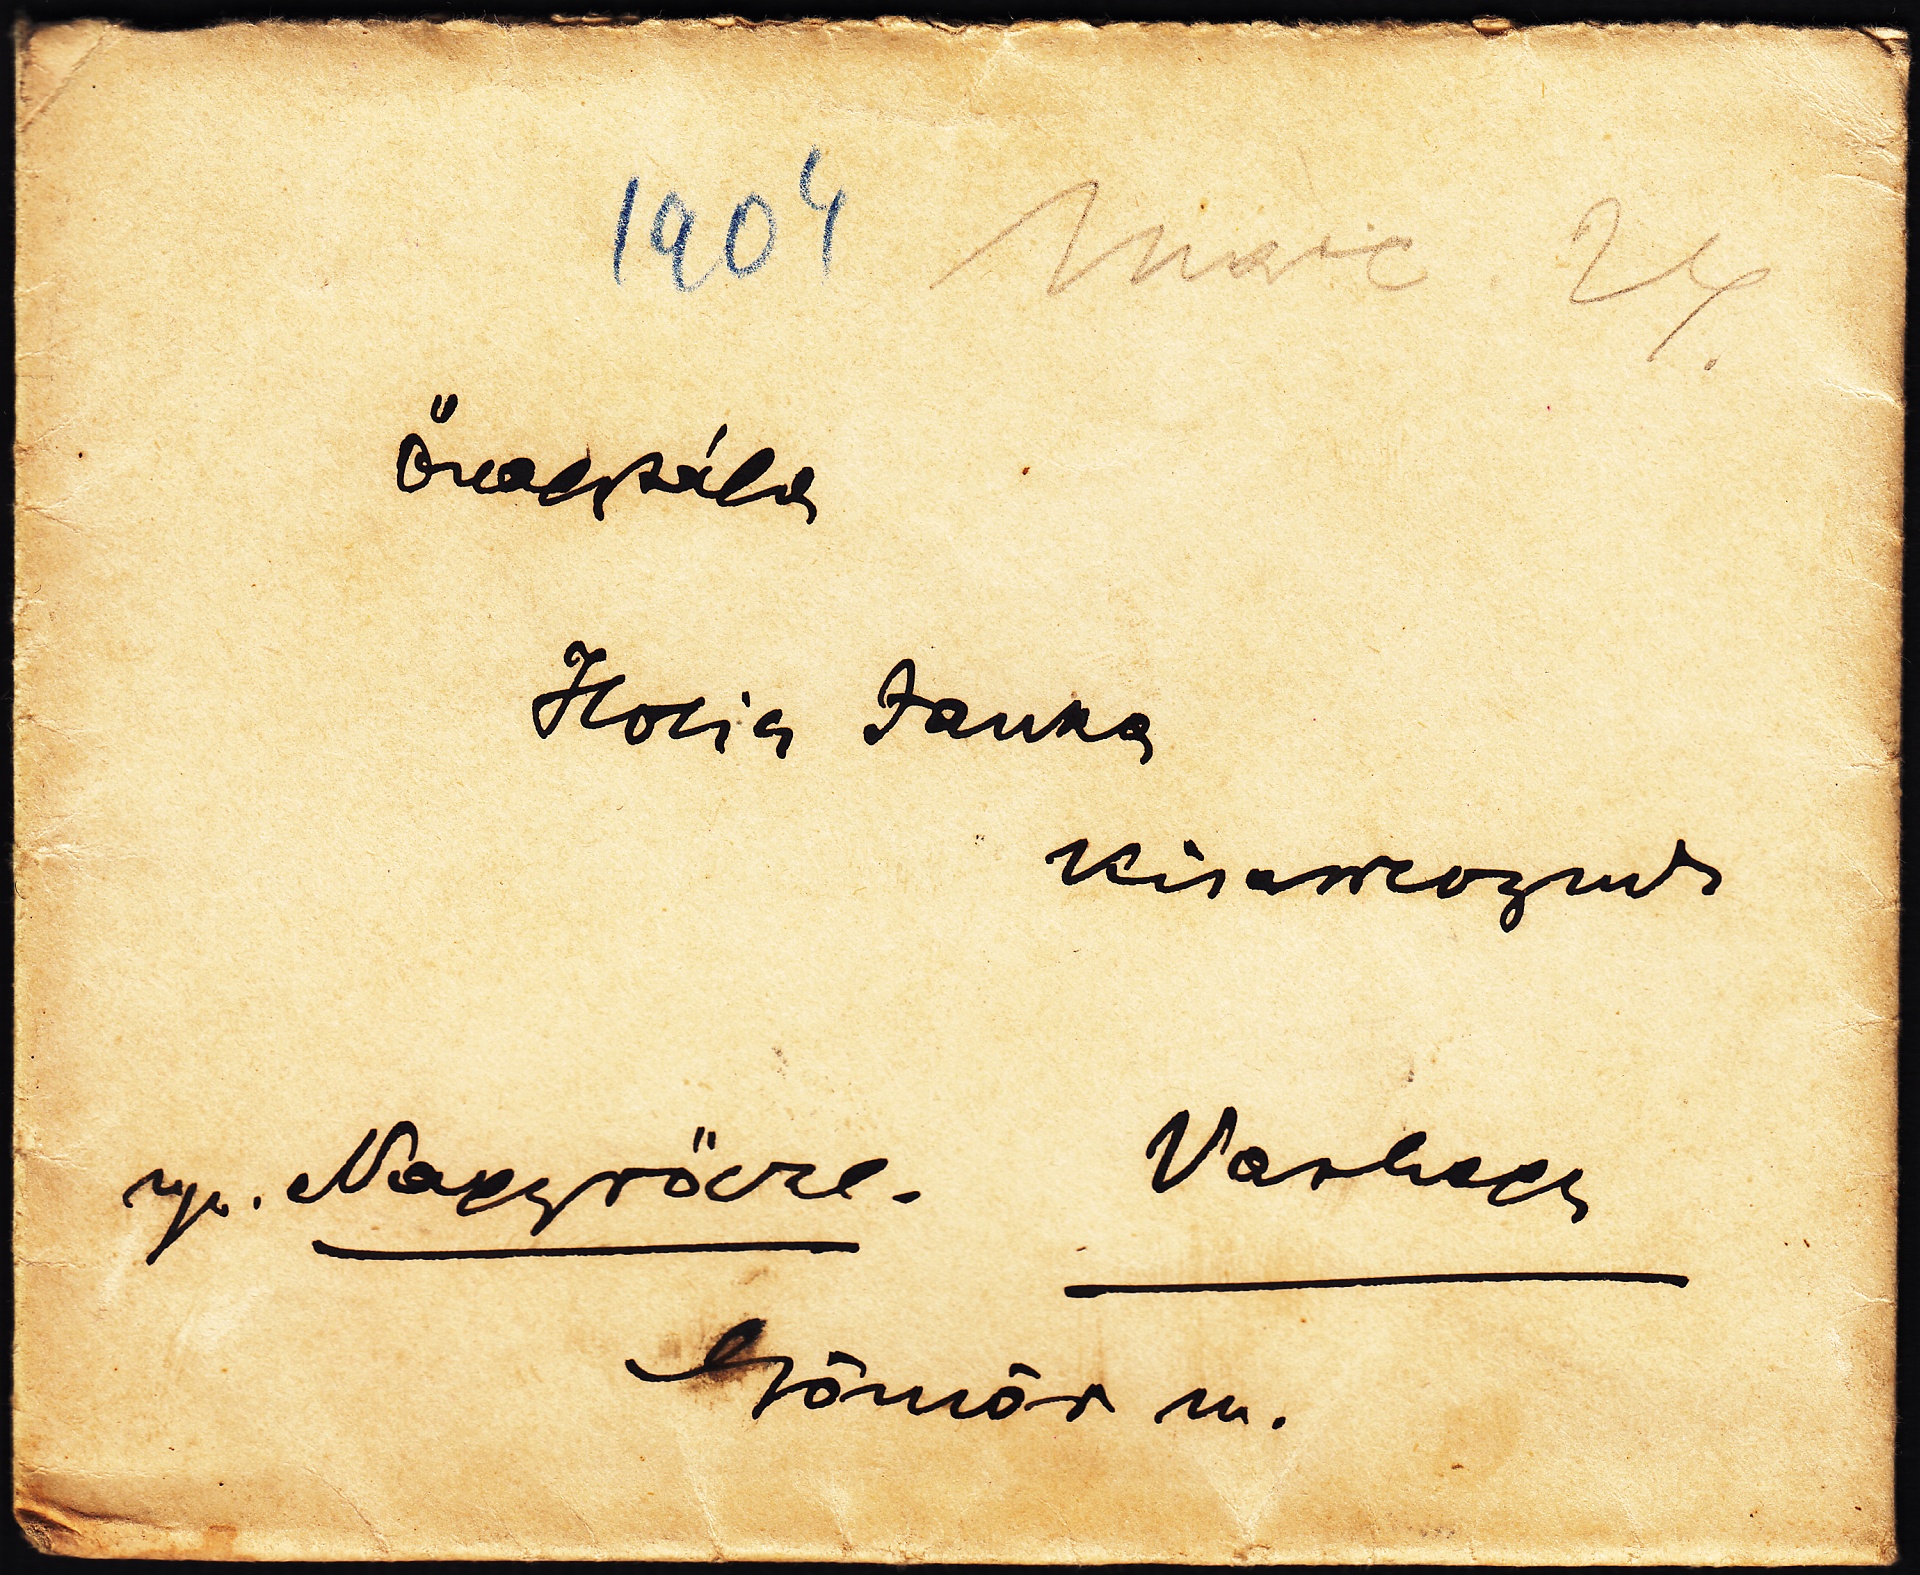 1904 Marc. 24.
Őnagysága
Hocia Janka
kisasszonynak
up. Nagyrőcze. Vashegy
Gömör m.